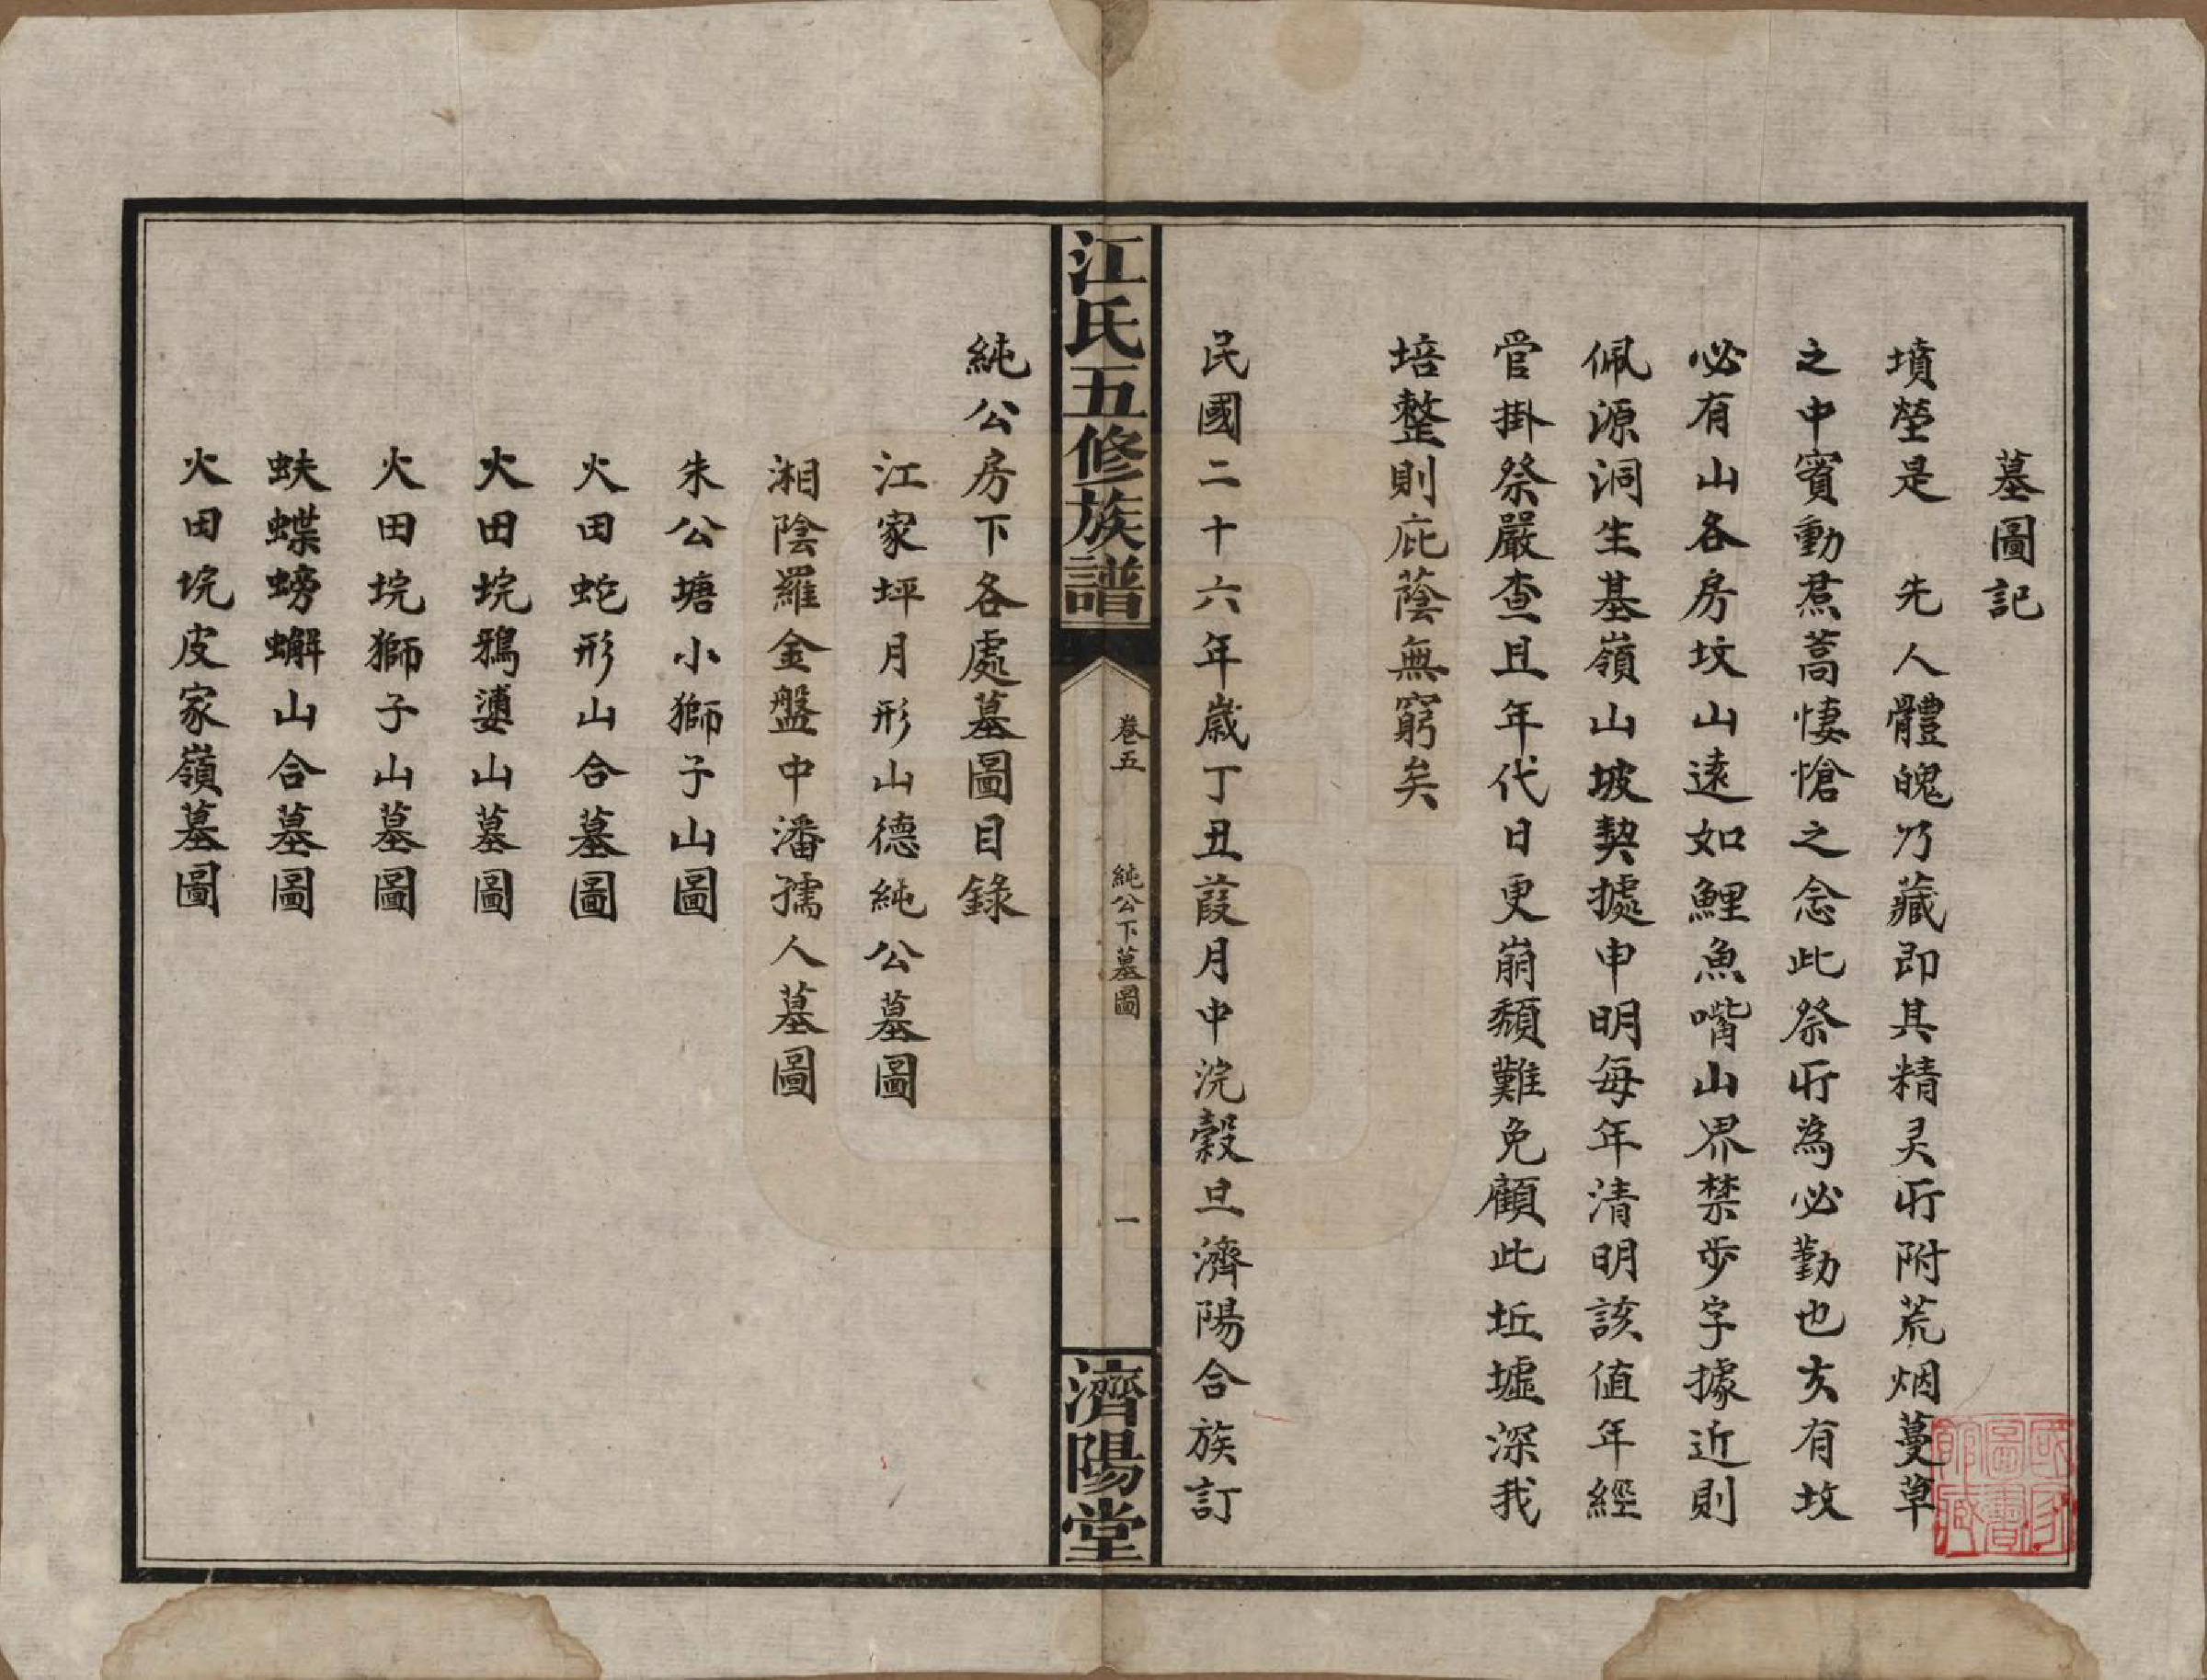 墓圖記
墳塋是　先人體魄乃藏即其精灵所附荒烟蔓草
之中賓動焄蒿悽愴之念此祭所為必勤也亥有坟
必有山各房坟山遠如鯉魚嘴山界禁步字據近則
佩源洞生基嶺山坡契據申明每年清明該值年經
管掛祭嚴查且年代日更崩頹難免顧此坵墟深我
培整則庇蔭無窮矣
民國二十六年歲丁丑葭月中浣穀旦濟陽合族訂
江氏五修族譜
卷五
純公下墓圖
一
濟陽堂
純公房下各處墓圖目錄
江家坪月形山德純公墓圖
湘陰羅金盤中潘孺人墓圖
朱公塘小獅子山圖
火田蛇形山合墓圖
火田垸鴉婆山墓圖
火田垸獅子山墓圖
蚨蝶螃蠏山合墓圖
火田垸皮家嶺墓圖
國家圖書館藏